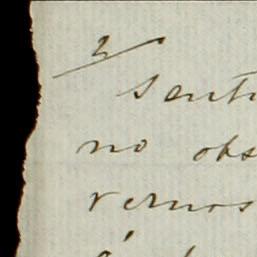 2/
Senti
no obs
vernos